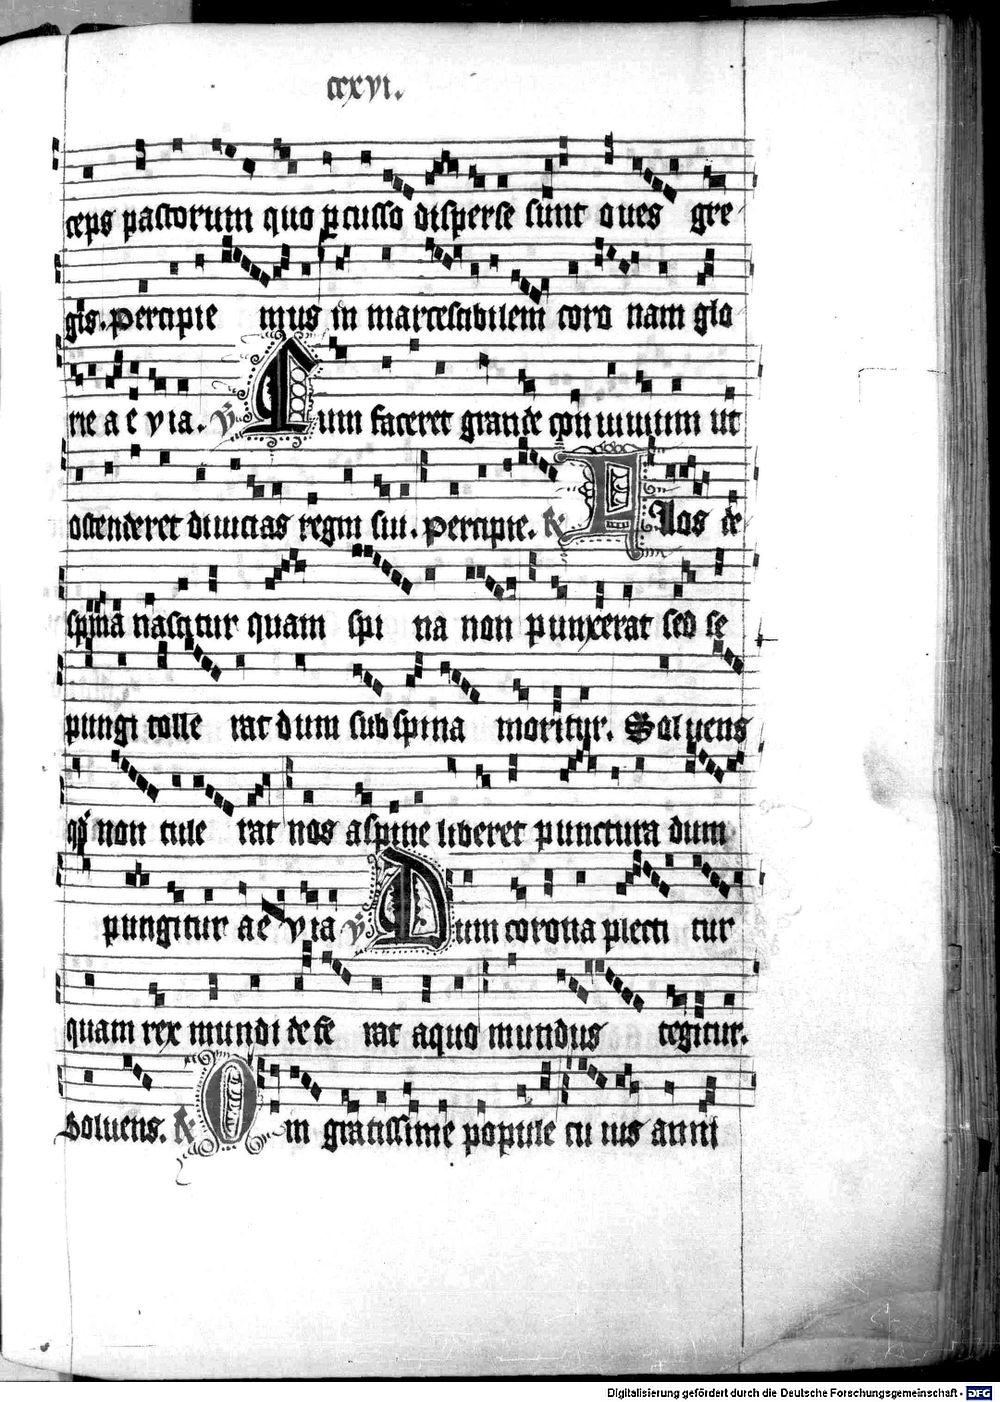 ccxvi.
ceps pastorum quo ꝑcusso disperse sunt oues gre
gis. Percipie mus in marcescibilem coro nam glo
rie a e v ia. ℣ Cum faceret grande con uiuium ut
ostenderet diuicias regni sui. Percipie. ℟ Flos de
spina nascitur quam spi na non punxerat sed se
pungi tolle rat dum sub spina moritur. Soluens
non tule rat nos a spine liberet punctura dum
pungitur ae v ia ℣ Dum corona plecti tur
quam rex mundi defe rat a quo mundus tegitur.
Soluens. ℟ O in gratissime popule cu ius anni
Digitalisierung gefördert durch die Deutsche Forschungsgemeinschaft - DFG